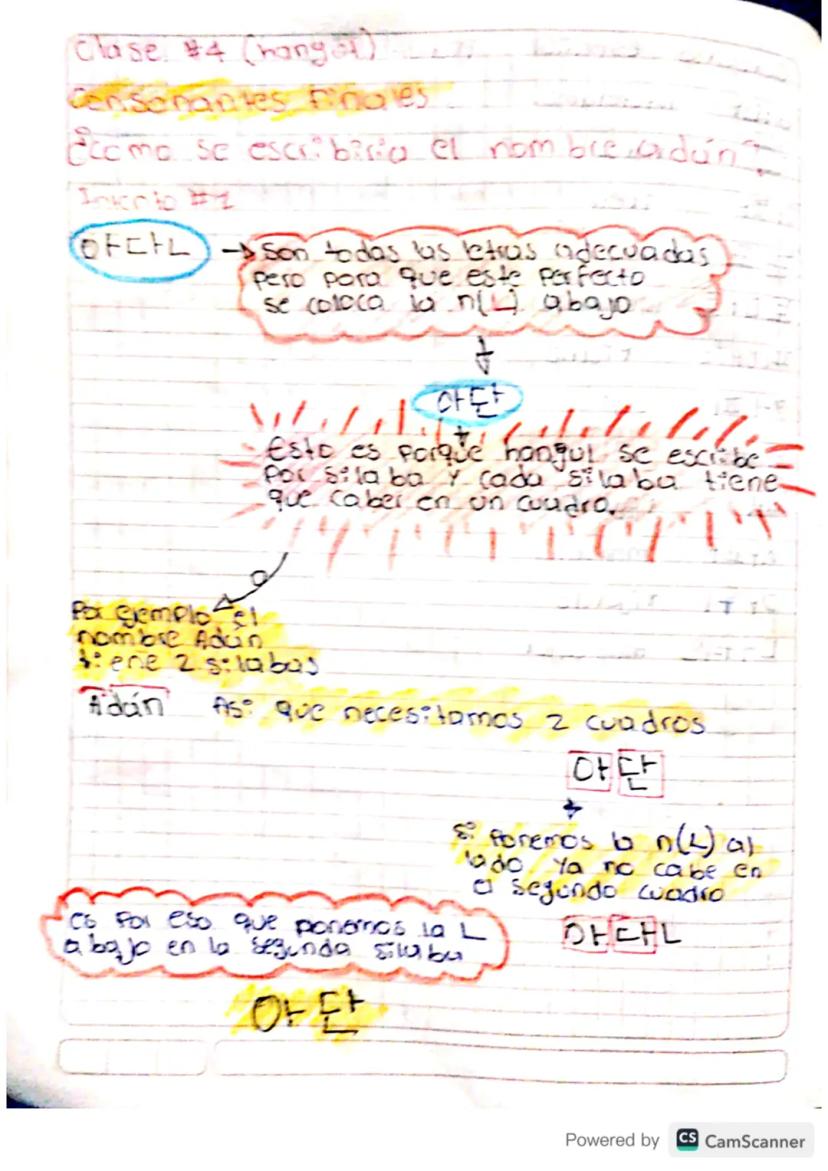 Clase #4 (hangul)
Consonantes Finales
¿Cómo se escribiria el nombre adún?
Intento #1
아다ㄴ → Son todas las letras adecuadas
pero para que este perfecto
se coloca la n(ㄴ) abajo
아단
Esto es porque hangul se escribe
por silaba y cada silaba tiene
que caber en un cuadro.
Por ejemplo el
nombre Adún
tiene 2 silabas
Adán Asi que necesitamos 2 cuadros
아단
Si ponemos la n(ㄴ) al
lado ya no cabe en
el segundo cuadro
es por eso que ponemos la ㄴ
abajo en la segunda silaba
아다ㄴ
아단
Powered by CS CamScanner